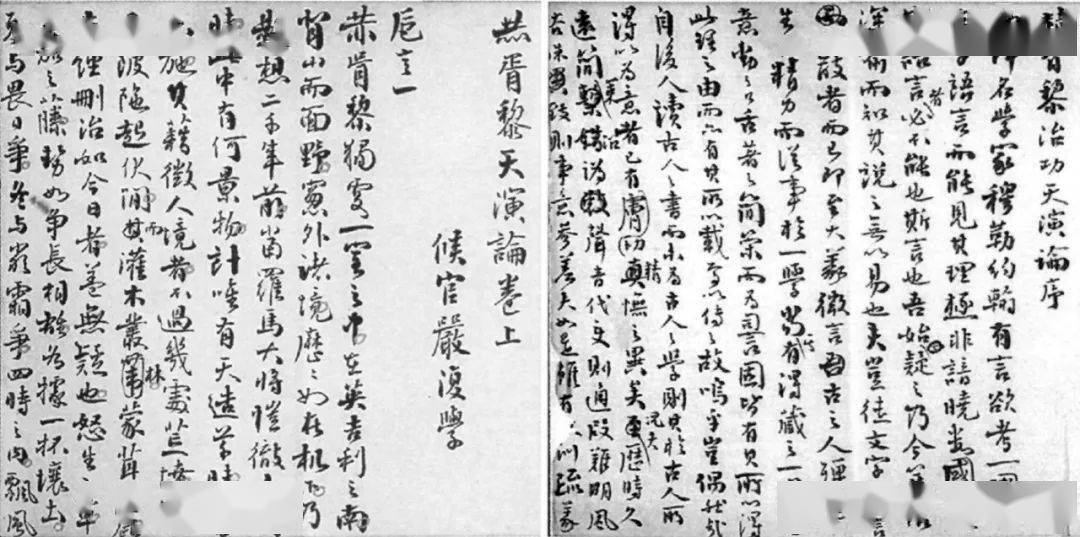 胥黎治功天演論序
名學家穆勒約翰有言欲考一
語言而能見其理極非諳曉數國
語言者必不能也斯言也吾始疑之乃今
深而知其說之無以易也夫豈徒文字
散者而已即至大義微言古之人殫
生精力而從事於一學當有得藏之一
意動之口舌著之簡策而為司言固皆有其所以得
此理之由而亦有其所以載焉以傳之故嗚乎豈偶然哉
自後人讀古人之書而未為古人之學則其於古人所
得以為意者已有膚切精憮之異矣況夫歷時久
遠簡錯訛聲音代變則通叚難明風
則事意參差夫如是雖有訓疏義
赫胥黎天演論卷上
候官嚴復學
卮言一
赫胥黎獨處一室之中在英吉利之南
背山而面野窗外諸境歷之如在机下乃
懸想二千年前當羅馬大將愷徹
時此中有何景物計唯有天造草昧
施其藉徵人境者不過幾處荒墳
陂陁起伏而其灌木叢林蒙茸
刪治如今日者蓋無疑也怒生之草
之藤勢如爭長相雄為據一抔壤土
夏與畏日爭冬與嚴霜爭四時之內飄風